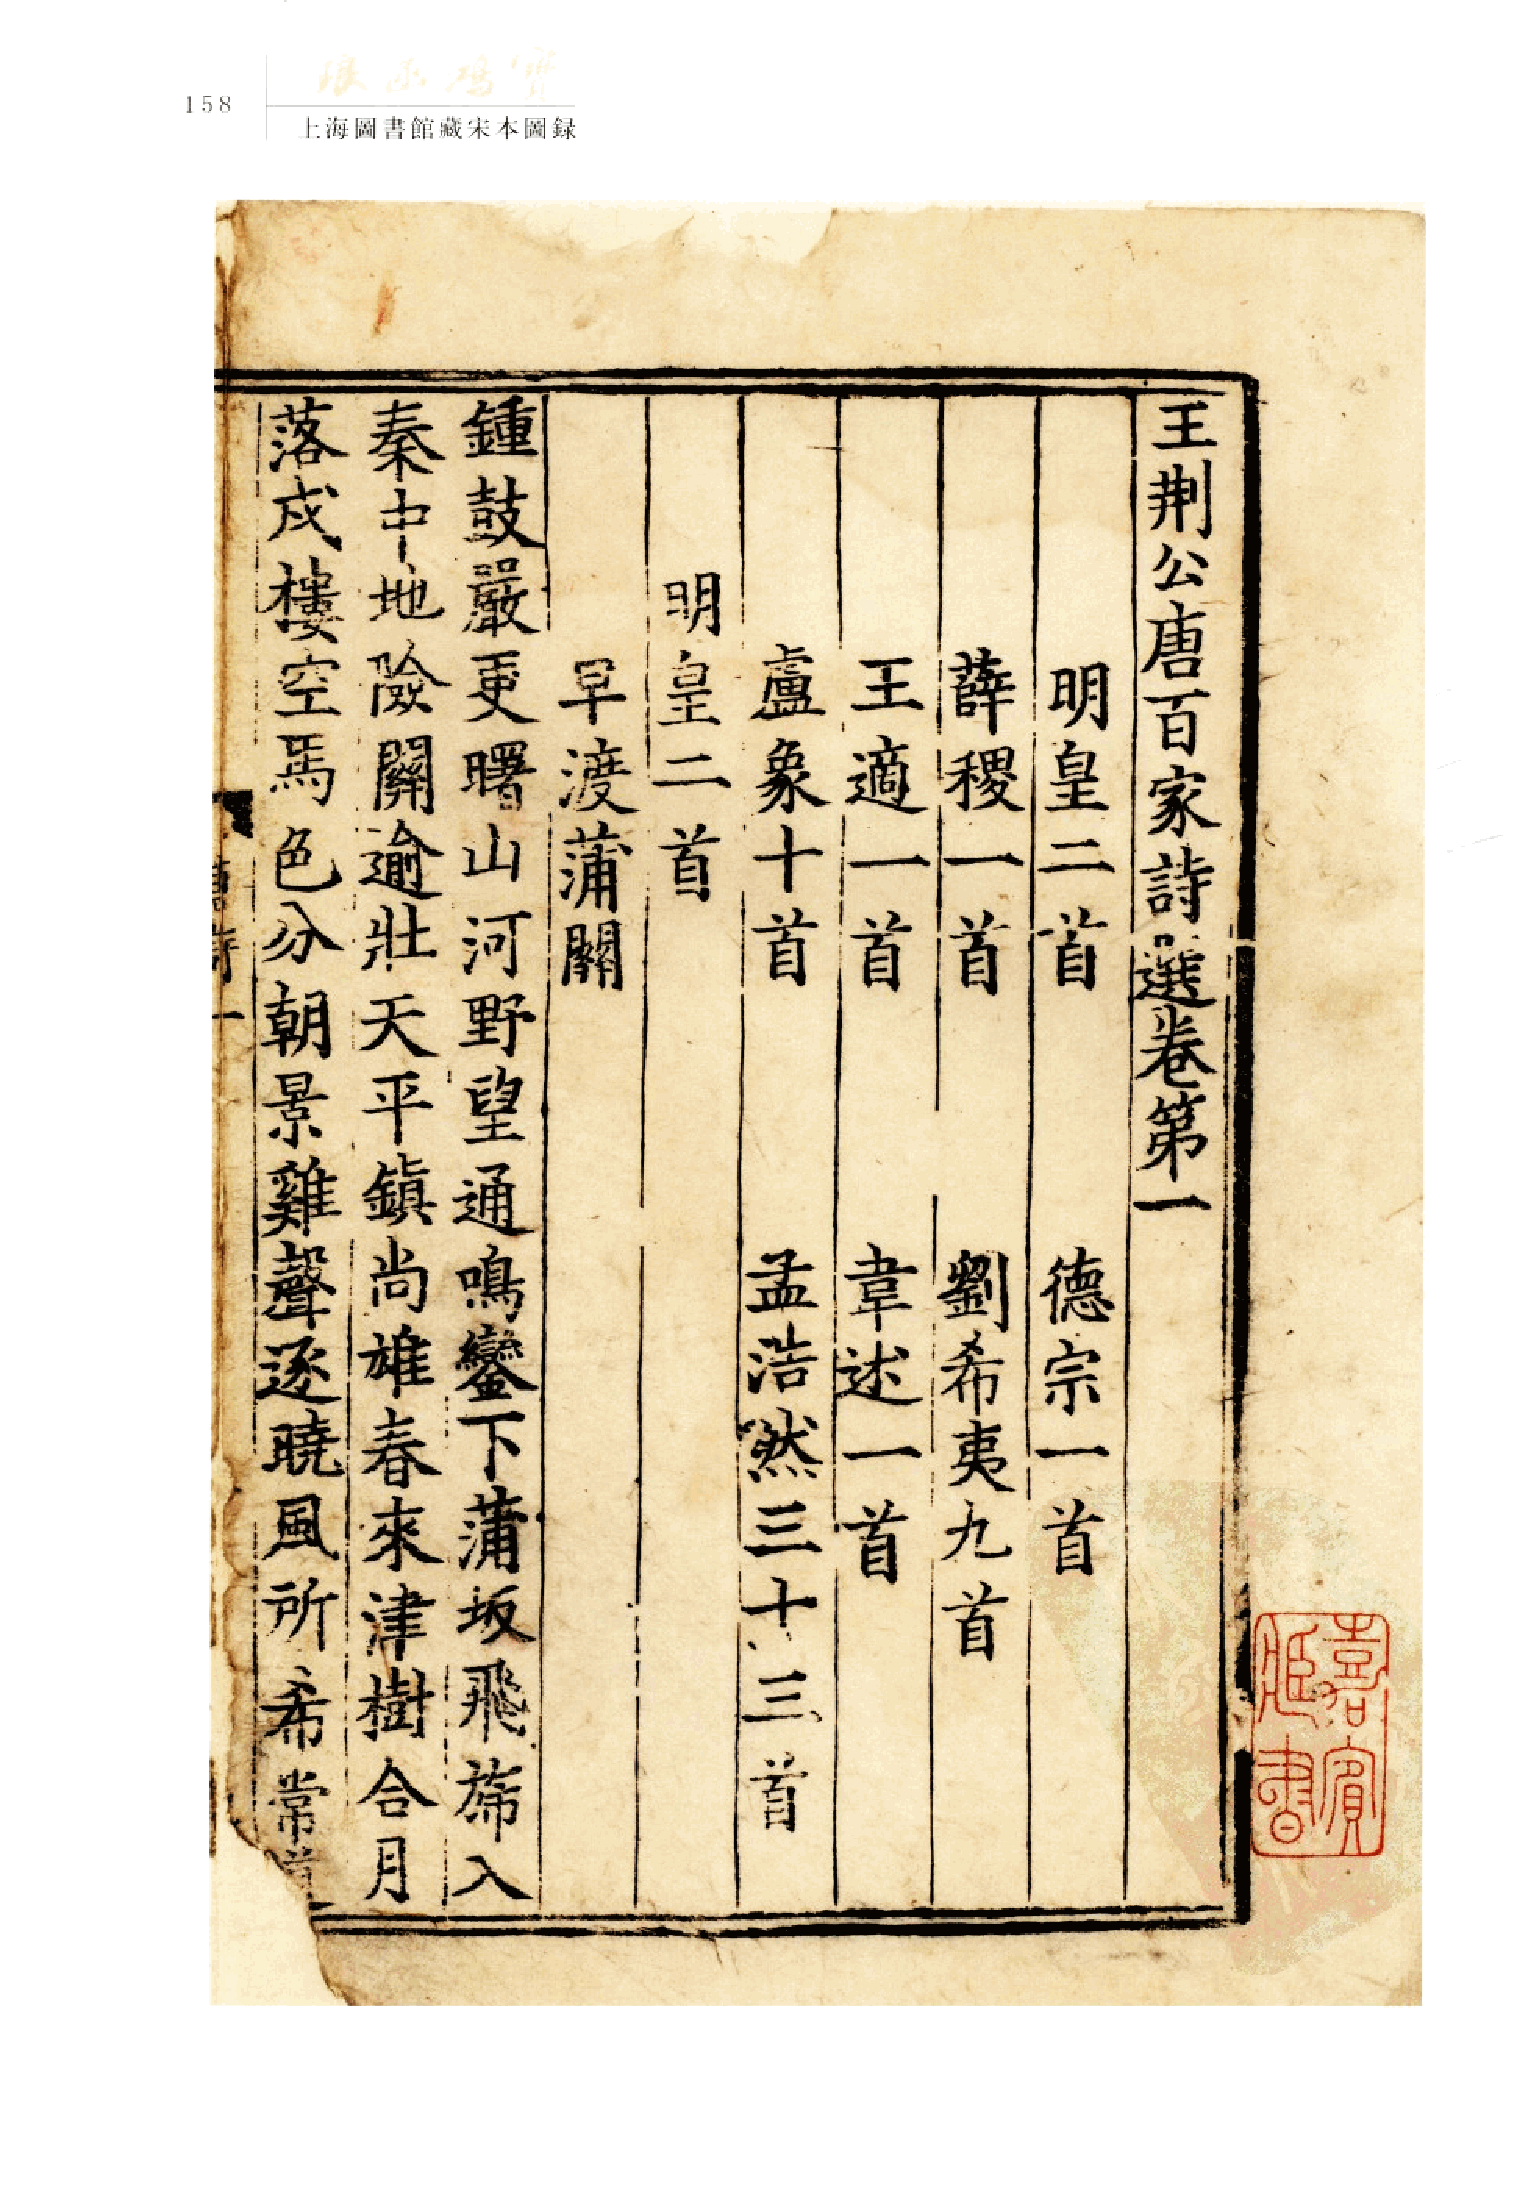 158
上海圖書館藏宋本圖録
王荆公唐百家詩選卷第一
明皇二首 德宗一首
薛稷一首 劉希夷九首
王適一首 韋述一首
盧象十首 孟浩然三十三首
明皇二首
早渡蒲關
鍾鼓嚴更曙山河野望通鳴鑾下蒲坂飛旆入
秦中地險關逾壯天平鎮尚雄春來津樹合月
落戍樓空馬色分朝景雞聲逐曉風所希常
詩一
嘉賓
書